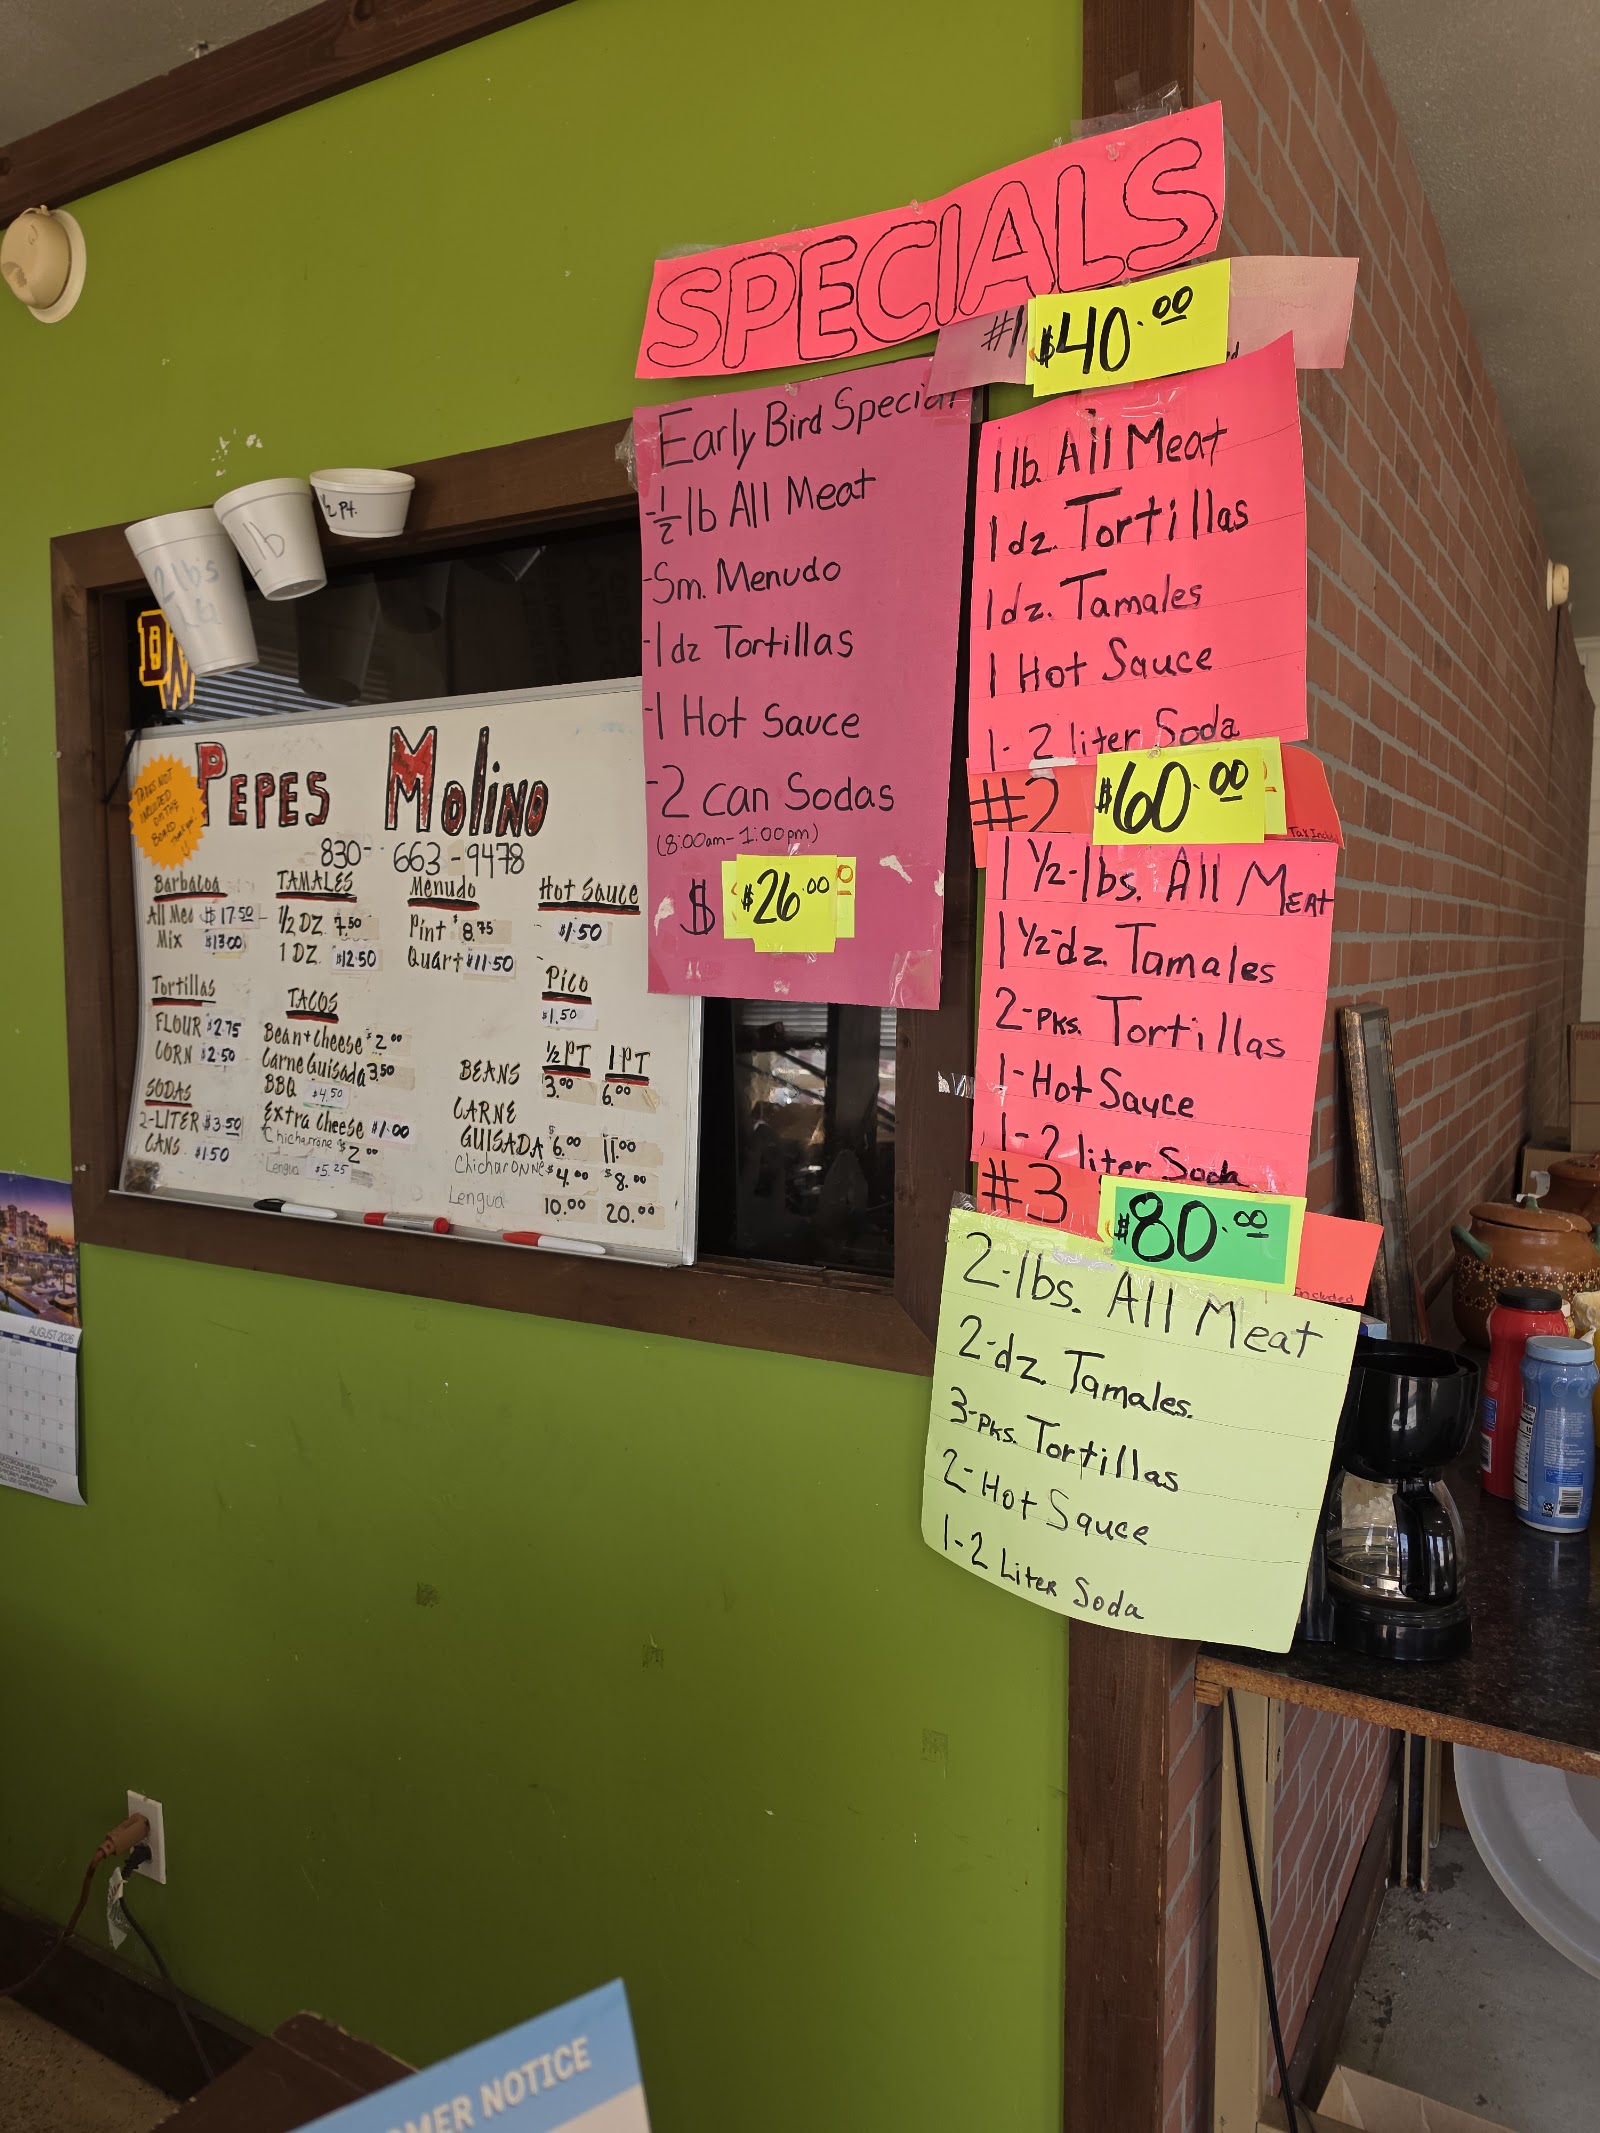 SPECIALS
#1 $40.00
1 lb. All Meat
1 dz. Tortillas
1 dz. Tamales
1 Hot Sauce
1- 2 liter Soda
#2 $60.00
Tax Includ
1 1/2-lbs. All Meat
1 1/2-dz. Tamales
2-Pks. Tortillas
1-Hot Sauce
1-2 liter Soda
#3 $80.00
Included
2-lbs. All Meat
2-dz. Tamales.
3-Pks. Tortillas
2-Hot Sauce
1-2 Liter Soda
Early Bird Special
-1/2 lb All Meat
-Sm. Menudo
-1 dz Tortillas
-1 Hot Sauce
-2 can Sodas
(8:00am-1:00pm)
$ $26.00
2 lbs
1 lb
1/2 Pt.
TAXES NOT
INCLUDED
ON THE
BOARD
Thank you!
PEPES MOLINO
830-663-9478
Barbacoa
All Mea $17.50
Mix $13.00
TAMALES
1/2 DZ 7.50
1 DZ $12.50
Menudo
Pint $8.75
Quart $11.50
Hot Sauce
$1.50
Pico
$1.50
Tortillas
FLOUR $2.75
CORN $2.50
SODAS
2-LITER $3.50
CANS $1.50
TACOS
Bean+Cheese $2.00
Carne Guisada 3.50
BBQ $4.50
Extra Cheese $1.00
Chicharrone $2.00
Lengua $5.25
1/2 PT 1 PT
BEANS 3.00 6.00
CARNE
GUISADA $6.00 11.00
Chicharonne $4.00 $8.00
Lengua 10.00 20.00
AUGUST 2026
OMER NOTICE